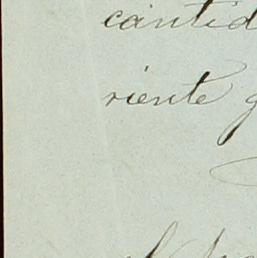 cantid
riente g
el